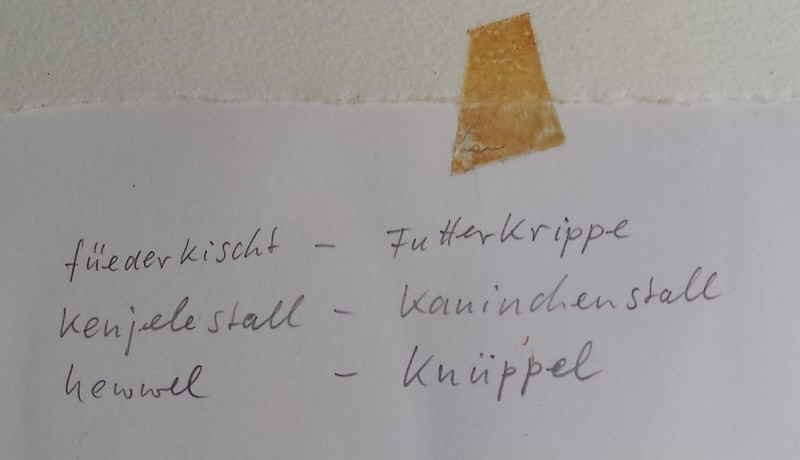 füederkischt – Futterkrippe
kenjelestall – Kaninchenstall
hewwel – Knüppel